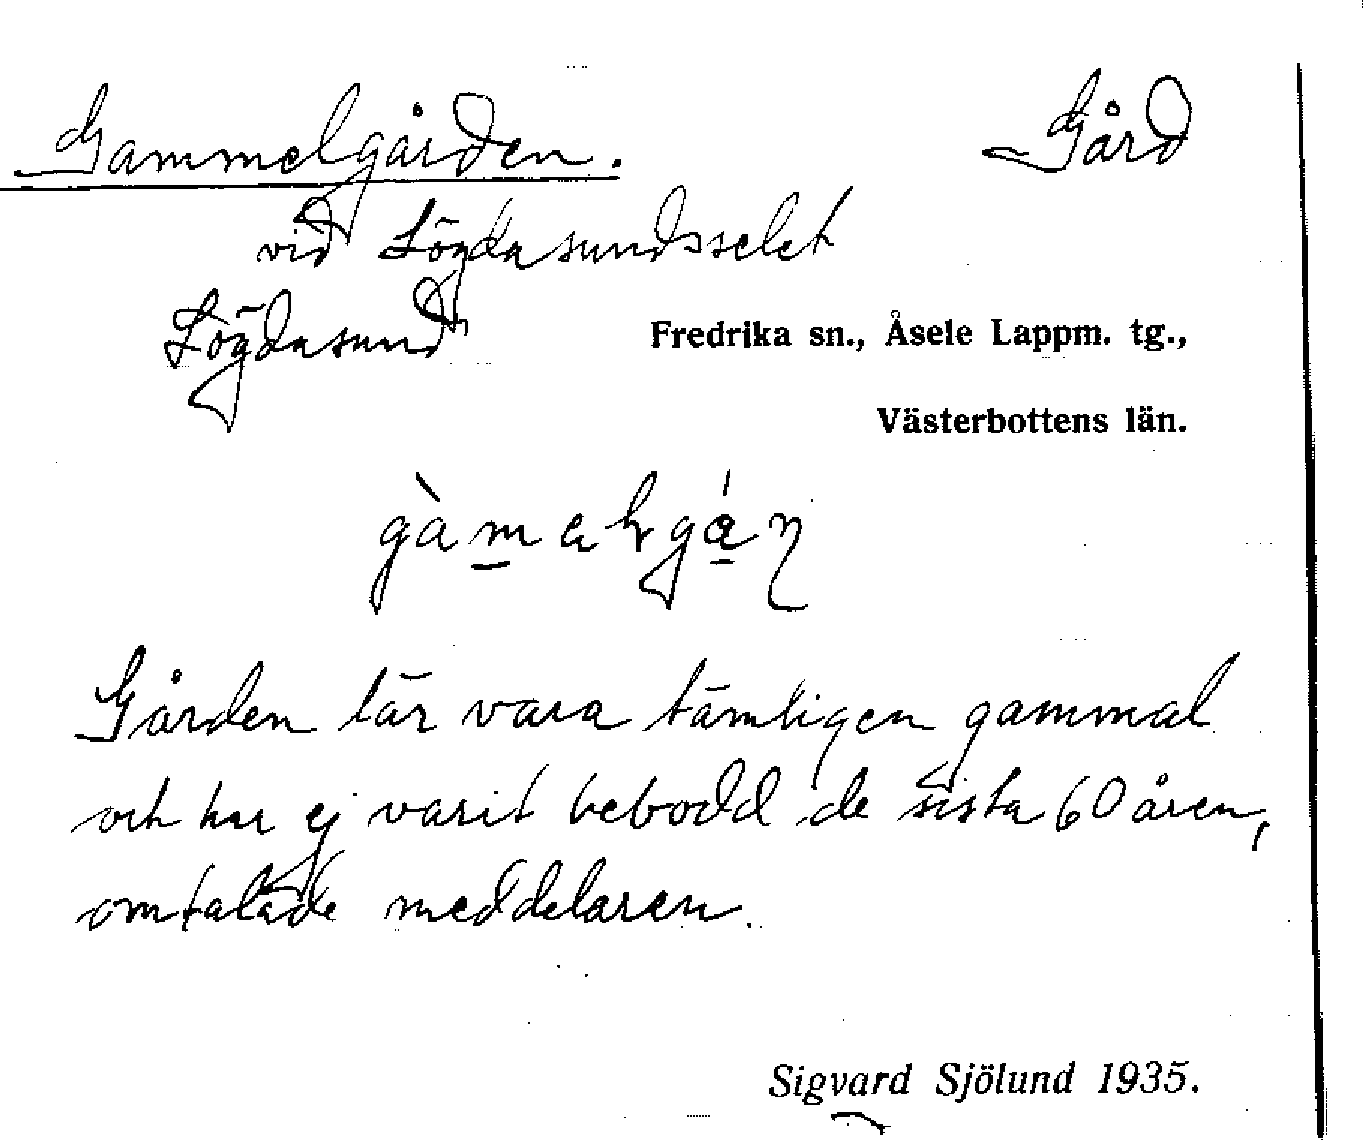 Gammelgården. Gård
vid Lögdasundsselet
Lögdasund Fredrika sn., Åsele Lappm. tg.,
Västerbottens län.
Gården lär vara tämligen gammal
och har ej varit bebodd de sista 60 åren,
omtalade meddelaren.
Sigvard Sjölund 1935.